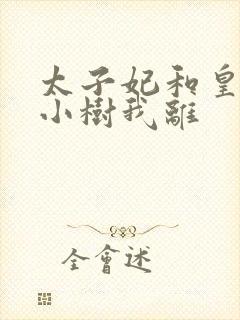 太子妃和皇
小樹我離
全會述